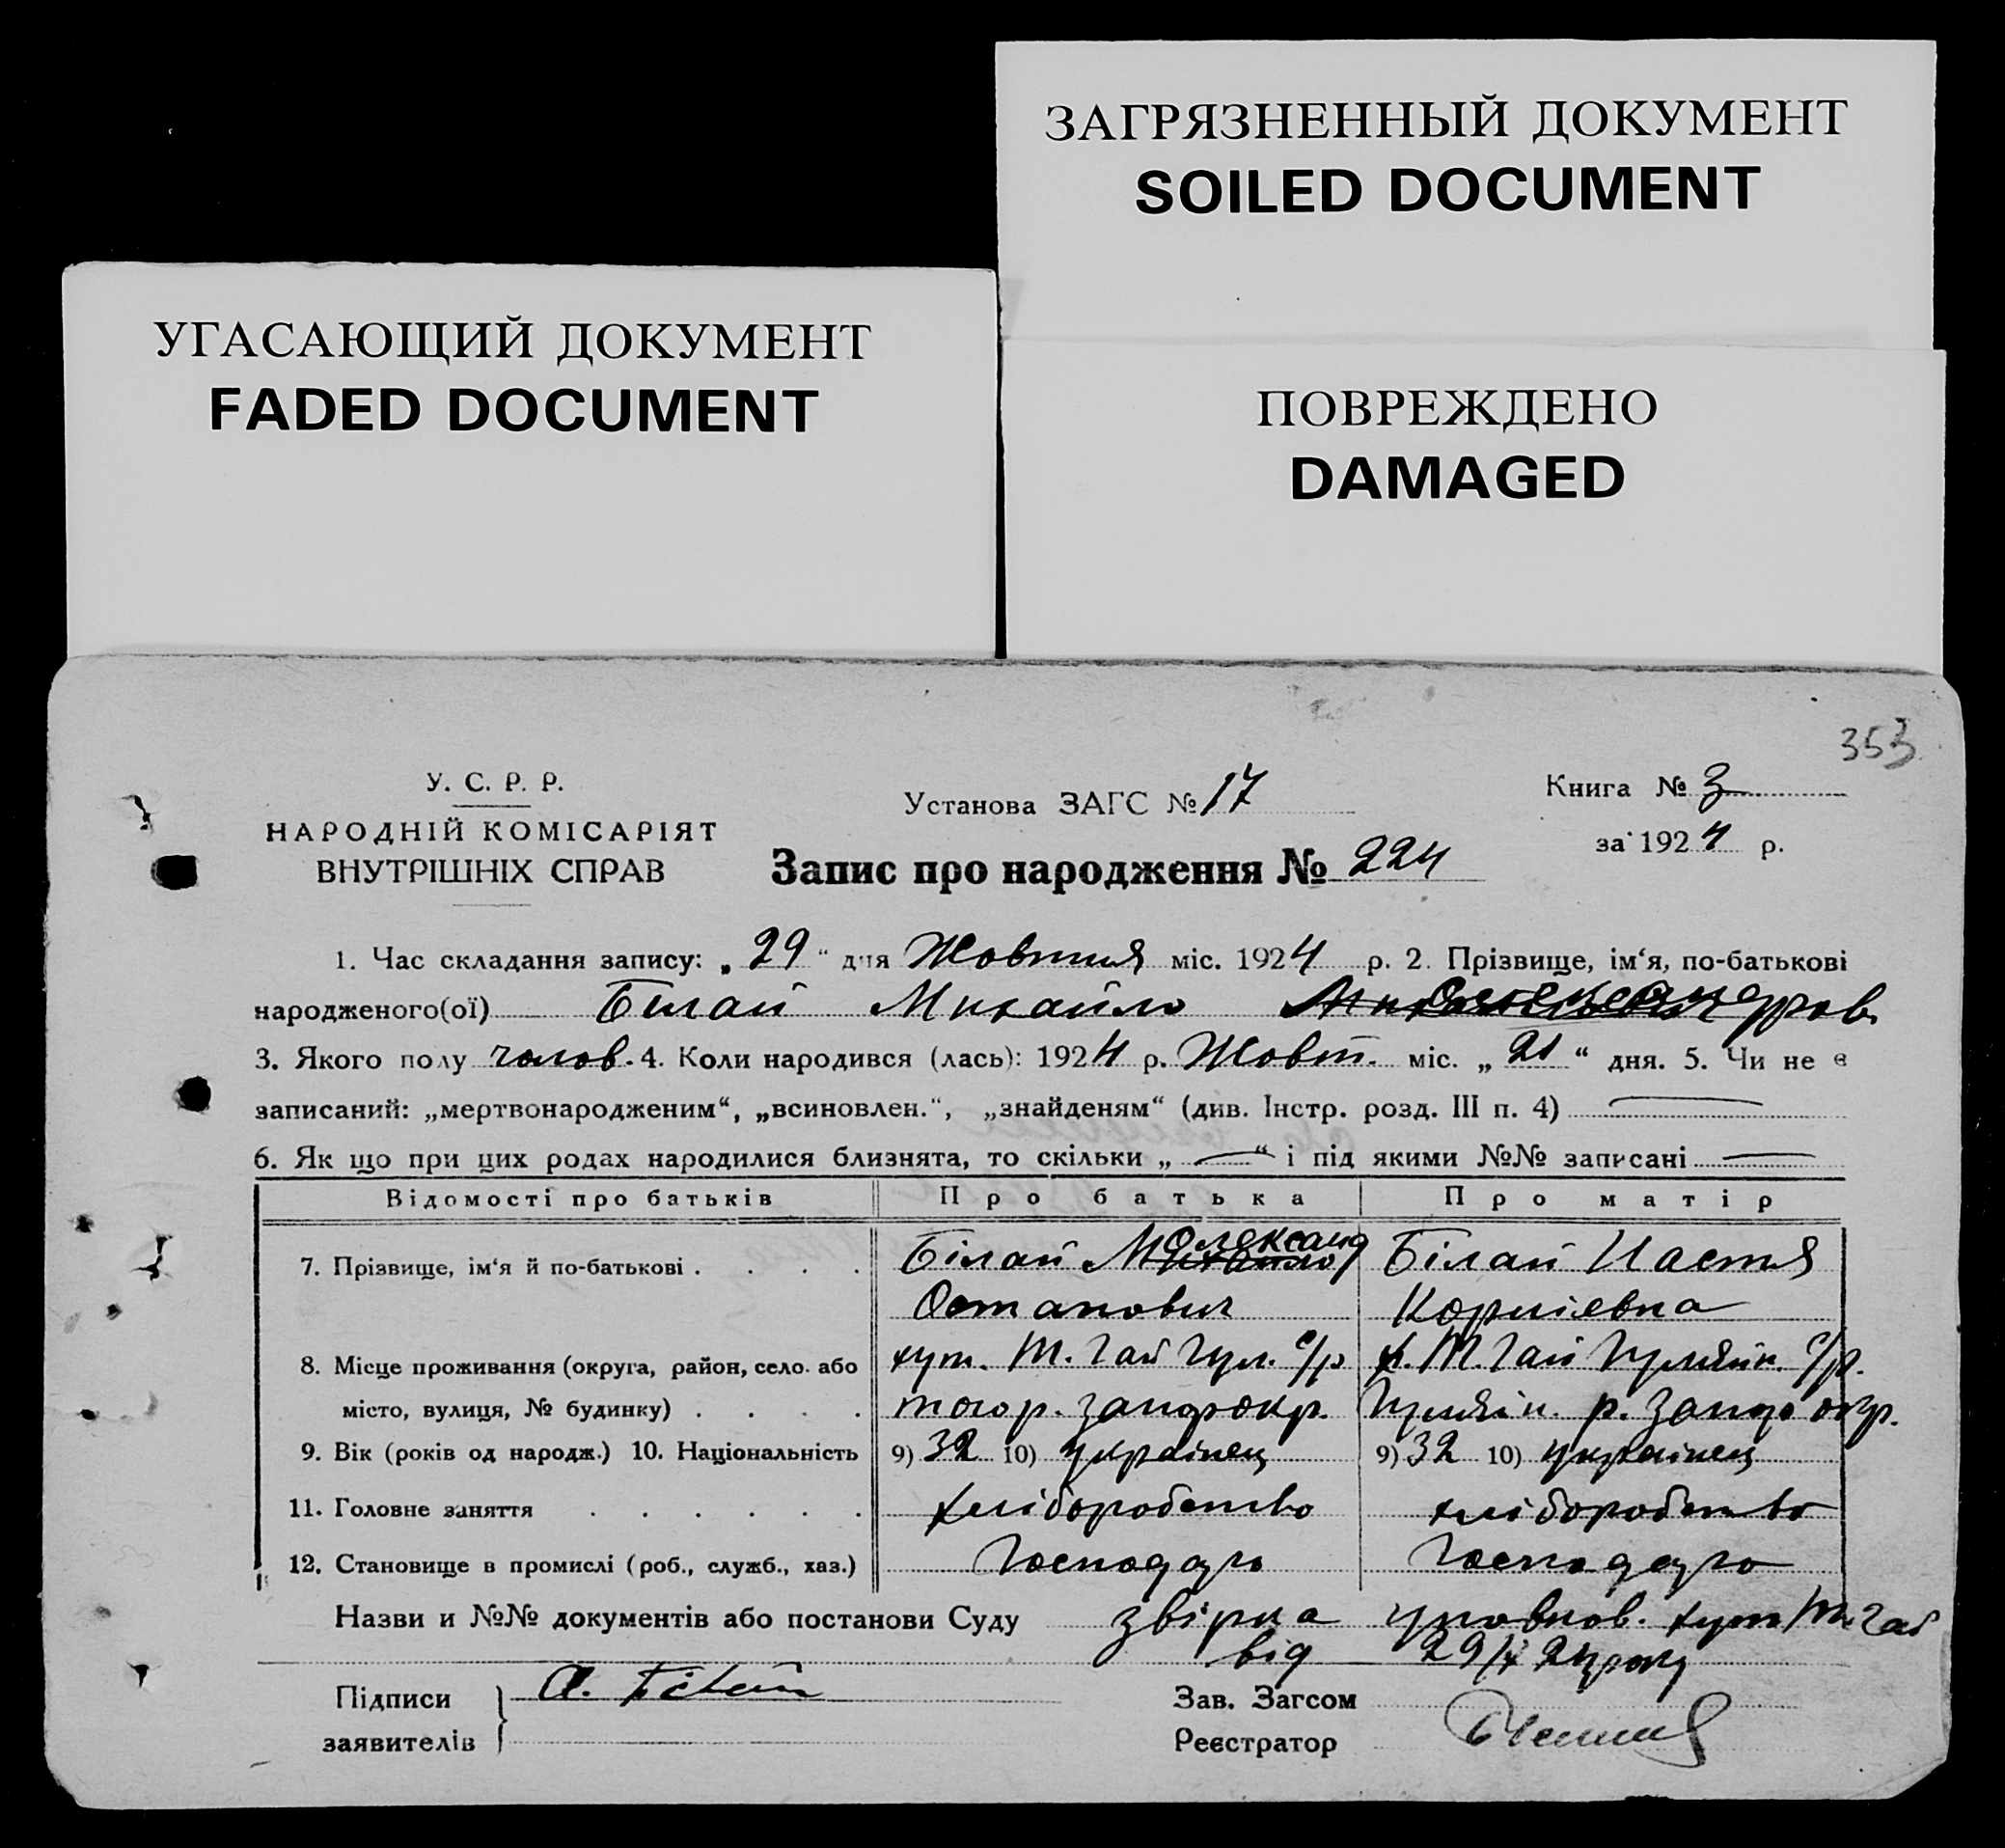 ЗАГРЯЗНЕННЫЙ ДОКУМЕНТ
SOILED DOCUMENT
УГАСАЮЩИЙ ДОКУМЕНТ
FADED DOCUMENT
ПОВРЕЖДЕНО
DAMAGED
353
У. С. Р. Р.
НАРОДНІЙ КОМІСАРІЯТ
ВНУТРІШНІХ СПРАВ
Установа ЗАГС № 17
Запис про народження № 224
Книга № 3
за 1924 р.
1. Час складання запису: „29“ дня Жовтня міс. 1924 р. 2. Прізвище, ім‘я, по-батькові
народженого(ої) Білай Михайло Олександров.
3. Якого полу чолов. 4. Коли народився (лась): 1924 р. Жовт. міс. „21“ дня. 5. Чи не є
записаний: „мертвонародженим“, „всиновлен.“, „знайденям“ (див. Інстр. розд. III п. 4) —
6. Як що при цих родах народилися близнята, то скільки „—“ і під якими №№ записані —
Відомості про батьків Про батька Про матір
7. Прізвище, ім‘я й по-батькові . . . . Білай Михайло Олександ Білай Настя
Остапович Корніевна
8. Місце проживання (округа, район, село або хут. Т. Гай Гул. с/р х. Т. Гай Гуляйп. с/р.
місто, вулиця, № будинку) . . . . того р. Запор окр. Гуляйп. р. Запор окр.
9. Вік (років од народж.) 10. Національність 9) 32 10) українец 9) 32 10) українец
11. Головне заняття . . . . . . хліборобство хліборобство
12. Становище в промислі (роб., служб., хаз.) Господарь Господарь
Назви и №№ документів або постанови Суду звірка уповнов. хут Т. Гай
від 29/X 24 року
Підписи
заявителів
А. Білай
Зав. Загсом
Реєстратор